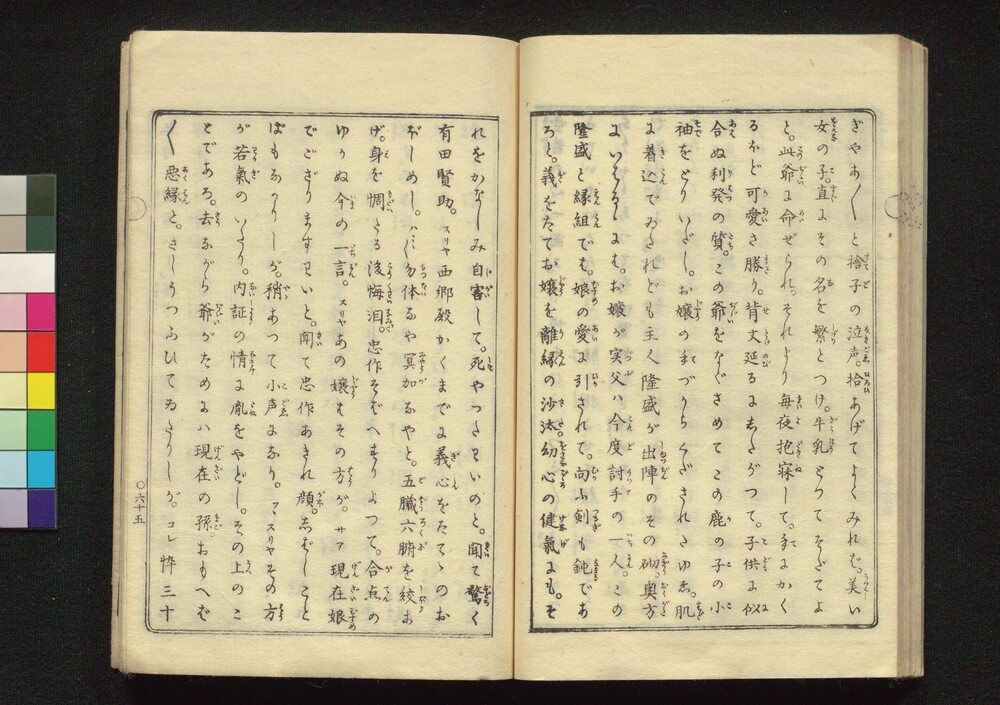 ぎやあ〳〵と捨子の泣声。拾あげてよくみれば。美い
女の子。直にその名を繁とつけ。牛乳とつてそだてよ
と。此爺に命ぜられ。それより毎夜抱寐して。手にかく
るほど可愛さ勝り。背丈延るにしたがつて。子供に似
合ぬ利発の質。この爺をなぐさめてこの鹿の子の小
袖をとりいだし。お嬢の手づからくださりたゆゑ。肌
に着込でゐされども主く隆盛が出陣のその砌奥方
にいはるゝにも。お嬢が実父ハ今度討手の一人。この
隆盛と縁組でも。娘の愛に引されて。向ふ剣も鈍であ
ろと。義をたてお嬢を離縁の沙汰幼心の健氣にも。そ
れをかなしみ自害して。死やつたわいのと。聞て驚く
有田賢助。スリヤ西郷殿かくまでに義心をたてゝのお
ぼしめし。ハヽ〳〵勿体なや冥加なやと。五臓六腑を絞あ
げ。身を惘たる後悔泪。忠作そばへすりよつて。合点の
ゆかぬ今の一言。スリヤあの嬢はその方が。サア現在娘
でござりますわいと。聞て忠作あきれ顔。しばしこと
ばもなかりしが。稍あつて小声になり。アヽスリヤその方
が若氣のいたり。内証の情に胤をやどし。その上のこ
とである。去ながら爺がためにハ現在の孫おもへば
〳〵悪縁と。さしうつふひてゐたりしが。コレ悴三十
〇六十五